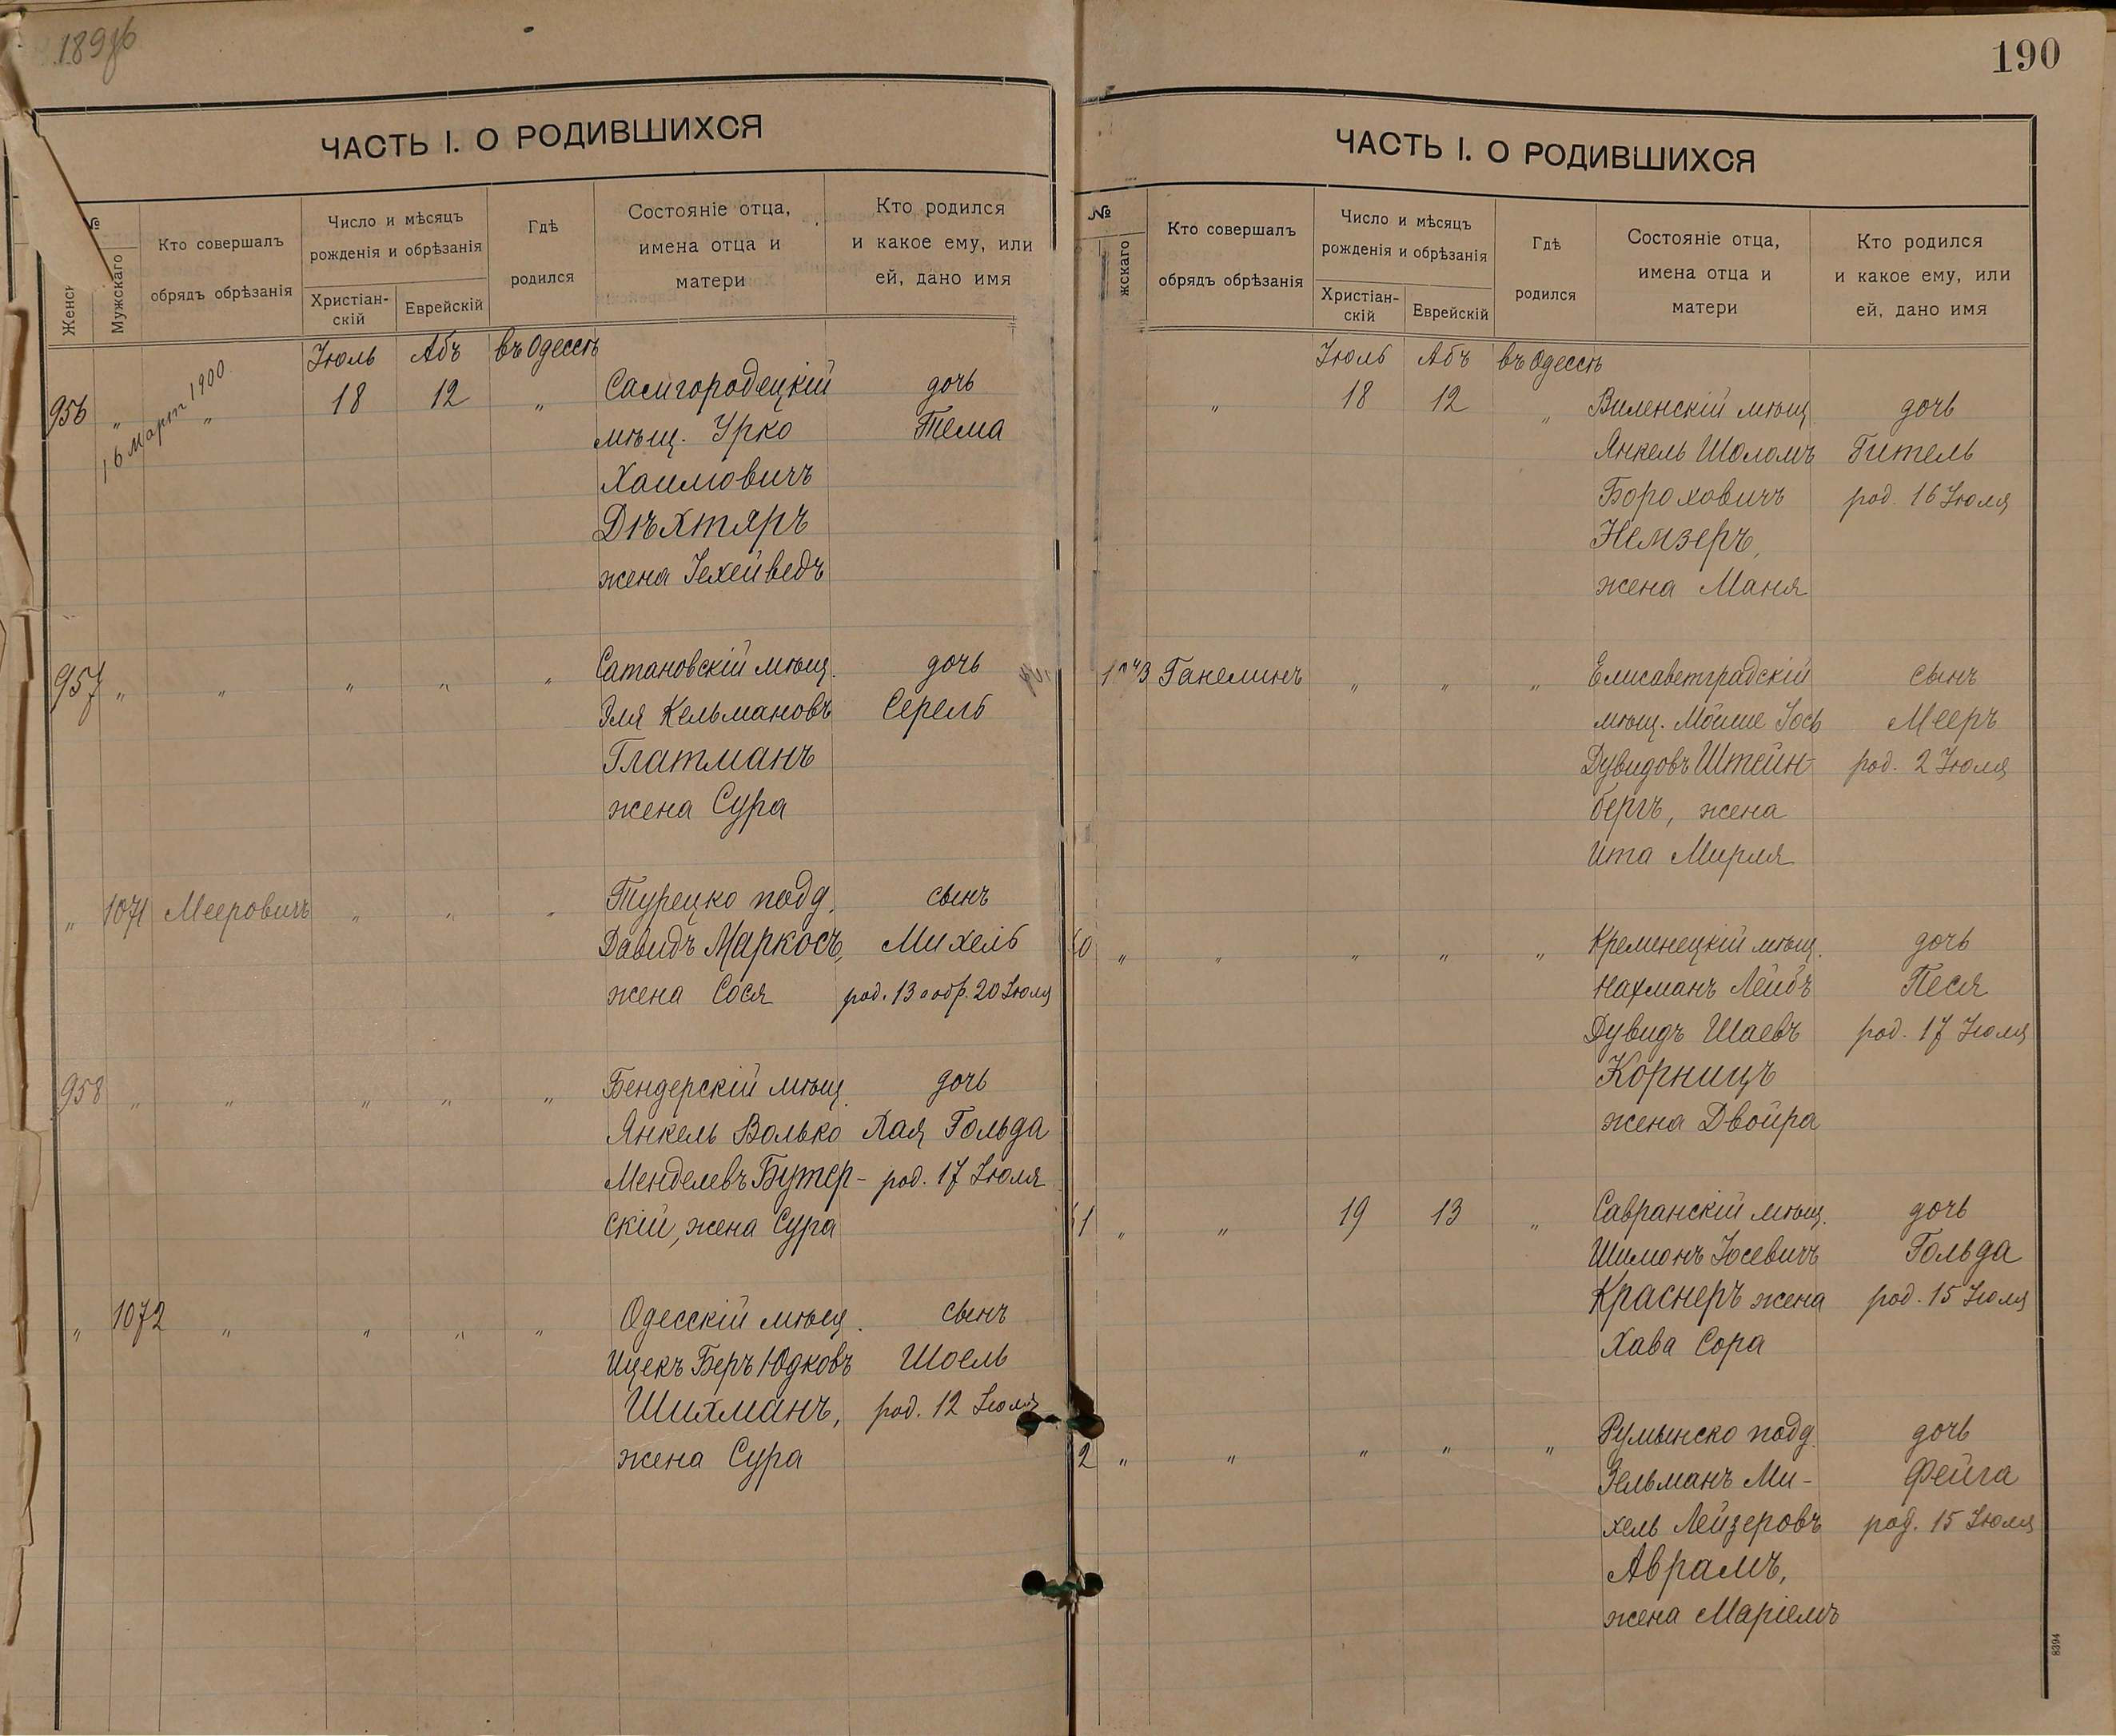 1896
ЧАСТЬ I. О РОДИВШИХСЯ
№
Женск
Мужскаго
Кто совершалъ
обрядъ обрѣзанія
Число и мѣсяцъ
рожденія и обрѣзанія
Христіан-
скій
Еврейскій
Гдѣ
родился
Состояніе отца,
имена отца и
матери
Кто родился
и какое ему, или
ей, дано имя
Іюль Абъ въ Одессѣ
956 " " 18 12 " Самгородецкій дочь
16 Март 1900
мѣщ. Урко Тема
Хаимовичъ
Дѣхтяръ
жена Іехейведъ
957 " " " " " Сатановскій мѣщ. дочь
Эля Кельмановъ Серель
Глатманъ
жена Сура
" 1071 Мееровичъ " " " Турецко подд. сынъ
Давидъ Маркосъ, Михель
жена Сося род. 13 обр. 20 Іюля
958 " " " " " Бендерскій мѣщ. дочь
Янкель Волько Хая Гольда
Менделевъ Бутер- род. 17 Іюля
скій, жена Сура
" 1072 " " " " Одесскій мѣщ. сынъ
Ицекъ Беръ Юдковъ Шоель
Шихманъ, род. 12 Іюля
жена Сура
190
ЧАСТЬ I. О РОДИВШИХСЯ
№
жскаго
Кто совершалъ
обрядъ обрѣзанія
Число и мѣсяцъ
рожденія и обрѣзанія
Христіан-
скій
Еврейскій
Гдѣ
родился
Состояніе отца,
имена отца и
матери
Кто родился
и какое ему, или
ей, дано имя
Іюль Абъ въ Одессѣ
" 18 12 " Виленскій мѣщ. дочь
Янкель Шоломъ Гитель
Бороховичъ род. 16 Іюля
Немзеръ,
жена Маня
1073 Ганелинъ " " " Елисаветградскій сынъ
мѣщ. Мойше Іось Мееръ
Дувидовъ Штейн- род. 2 Іюля
бергъ, жена
Ита Мирля
60 " " " " " Кременецкій мѣщ. дочь
Нахманъ Лейбъ Песя
Дувидъ Шаевъ род. 17 Іюля
Корницъ
жена Двойра
61 " " 19 13 " Савранскій мѣщ. дочь
Шимонъ Іосевичъ Гольда
Краснеръ жена род. 15 Іюля
Хава Сора
2 " " " " " Румынско подд. дочь
Зельманъ Ми- Фейга
хель Лейзеровъ род. 15 Іюля
Аврамъ,
жена Маріемъ
8394